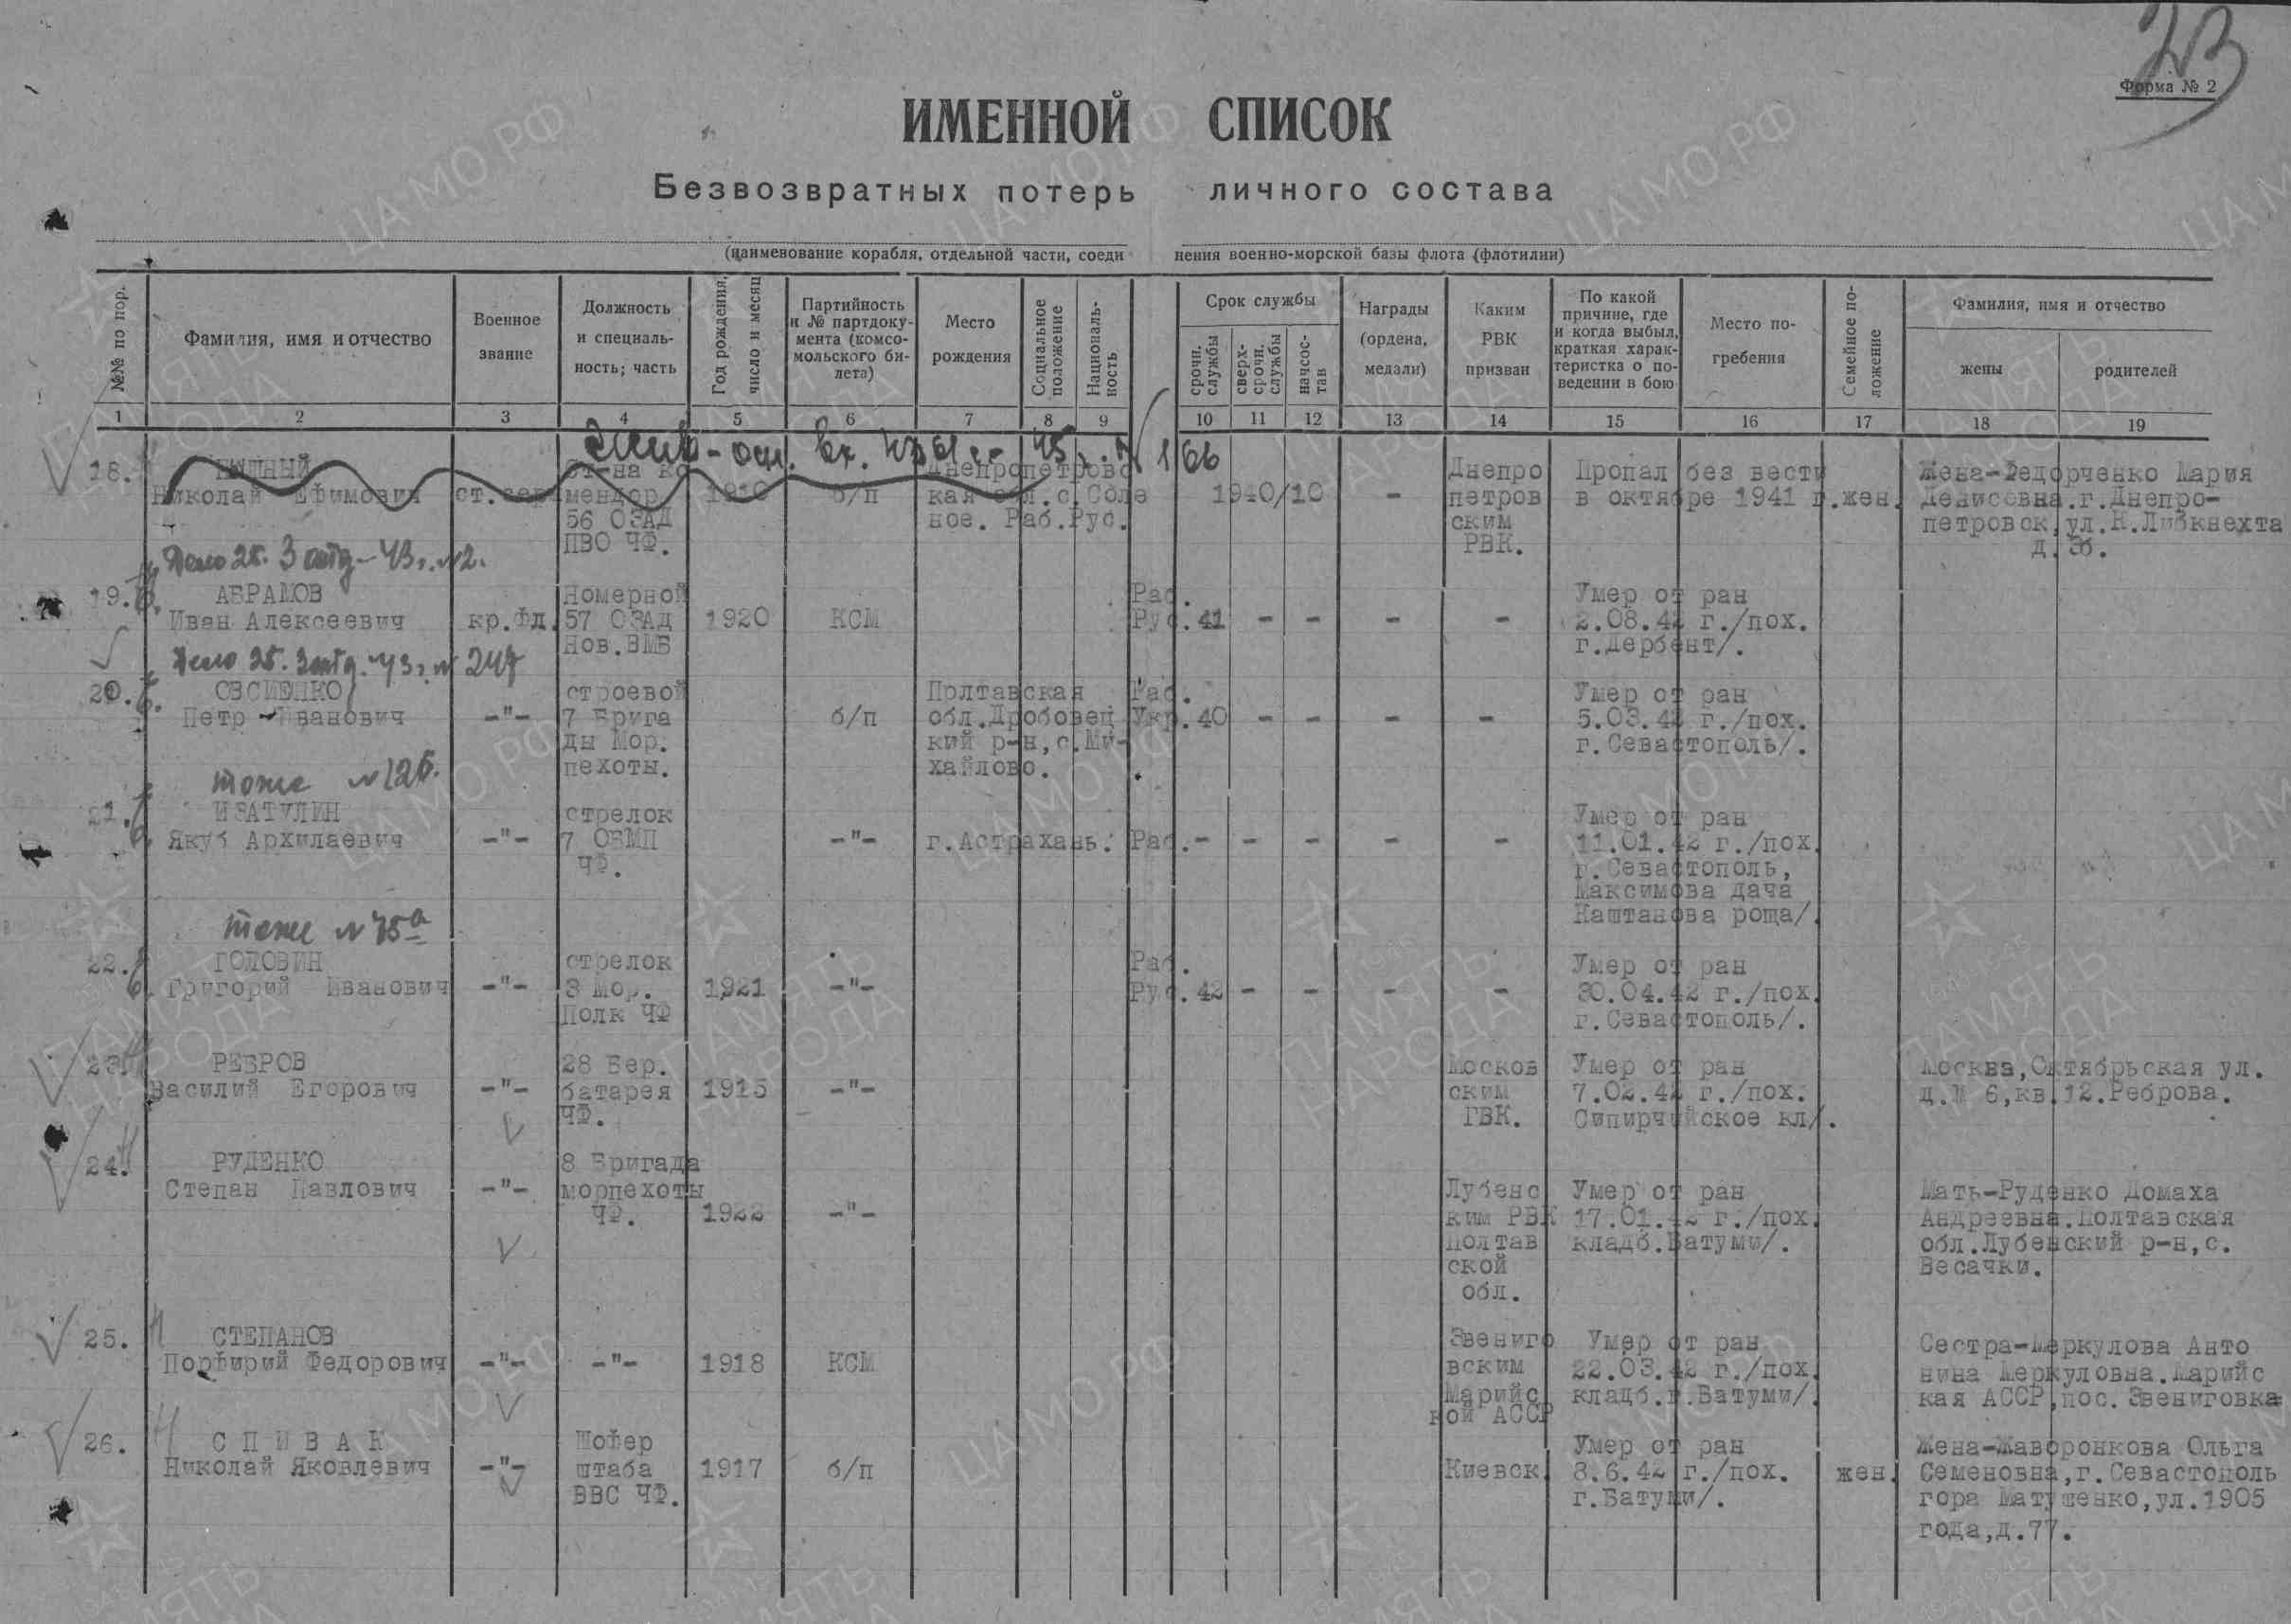 23
Форма № 2
ИМЕННОЙ СПИСОК
Безвозвратных потерь личного состава
(наименование корабля, отдельной части, соеди нения военно-морской базы флота (флотилии)
№№ по пор.
Фамилия, имя и отчество
Военное звание
Должность и специаль- ность; часть
Год рождения, число и месяц
Партийность и № партдоку- мента (комсо- мольского би- лета)
Место рождения
Социальное положение
Националь- ность
Срок службы
срочн. службы
сверх- срочн. службы
начсос- тав
Награды (ордена, медали)
Каким РВК призван
По какой причине, где и когда выбыл, краткая харак- теристка о по- ведении в бою
Место по- гребения
Семейное по- ложение
Фамилия, имя и отчество
жены
родителей
1 2 3 4 5 6 7 8 9 10 11 12 13 14 15 16 17 18 19
18. Днепропетровс Днепро Пропал без вести Жена-Федорченко Мария
Николай Ефимович ст.сер мендор 1910 б/п кая обл.с.Соле 1940/10 - петров в октябре 1941 г. жен. Денисовна.г.Днепро-
56 ОЗАД ное. Раб.Рус. ским петровск,ул.К.Либкнехта
ПВО ЧФ. РВК.
19. АБРАМОВ Номерной Раб. Умер от ран
Иван Алексеевич кр.Фл. 57 ОЗАД 1920 КСМ Рус. 41 - - - - 2.08.42 г./пох.
Нов.ВМБ г.Дербент/.
20. ОВСИЕНКО строевой Полтавская Раб. Умер от ран
Петр Иванович -"- 7 Брига б/п обл.Дробовец Укр. 40 - - - - 5.03.42 г./пох.
ды Мор. кий р-н,с.Ми- г.Севастополь/.
пехоты. хайлово.
тоже № 126.
21. ИЗАТУЛИН стрелок Умер от ран
Якуб Архилаевич -"- 7 ОБМП -"- г.Астрахань. Раб. - - - - - 11.01.42 г./пох.
ЧФ. г.Севастополь,
Максимова дача
Каштанова роща/.
тоже № 75а
22. ГОЛОВИН стрелок Раб. Умер от ран
Григорий Иванович -"- 3 Мор. 1921 -"- Рус. 42 - - - - 30.04.42 г./пох.
Полк ЧФ г.Севастополь/.
23. РЕБРОВ 28 Бер. Москов Умер от ран Москва,Октябрьская ул.
Василий Егорович -"- батарея 1915 -"- ским 7.02.42 г./пох. д.№ 6,кв.12.Реброва.
ЧФ. ГВК. Сипирчийское кл/.
24. РУДЕНКО 8 Бригада
Степан Павлович -"- морпехоты Лубенс Умер от ран Мать-Руденко Домаха
ЧФ. 1922 -"- ким РВК 17.01.42 г./пох. Андреевна.Полтавская
Полтав кладб.Батуми/. обл.Лубенский р-н,с.
ской Весачки.
обл.
25. СТЕПАНОВ Звениго Умер от ран Сестра-Меркулова Анто
Порфирий Федорович -"- -"- 1918 КСМ вским 22.03.42 г./пох. нина Меркуловна.Марийс
Марийс кладб.г.Батуми/. кая АССР,пос.Звениговка
кой АССР
26. СПИВАК Шофер Умер от ран Жена-Жаворонкова Ольга
Николай Яковлевич -"- штаба 1917 б/п Киевск. 8.6.42 г./пох. жен. Семеновна,г.Севастополь
ВВС ЧФ. г.Батуми/. гора Матушенко,ул.1905
года,д.77.